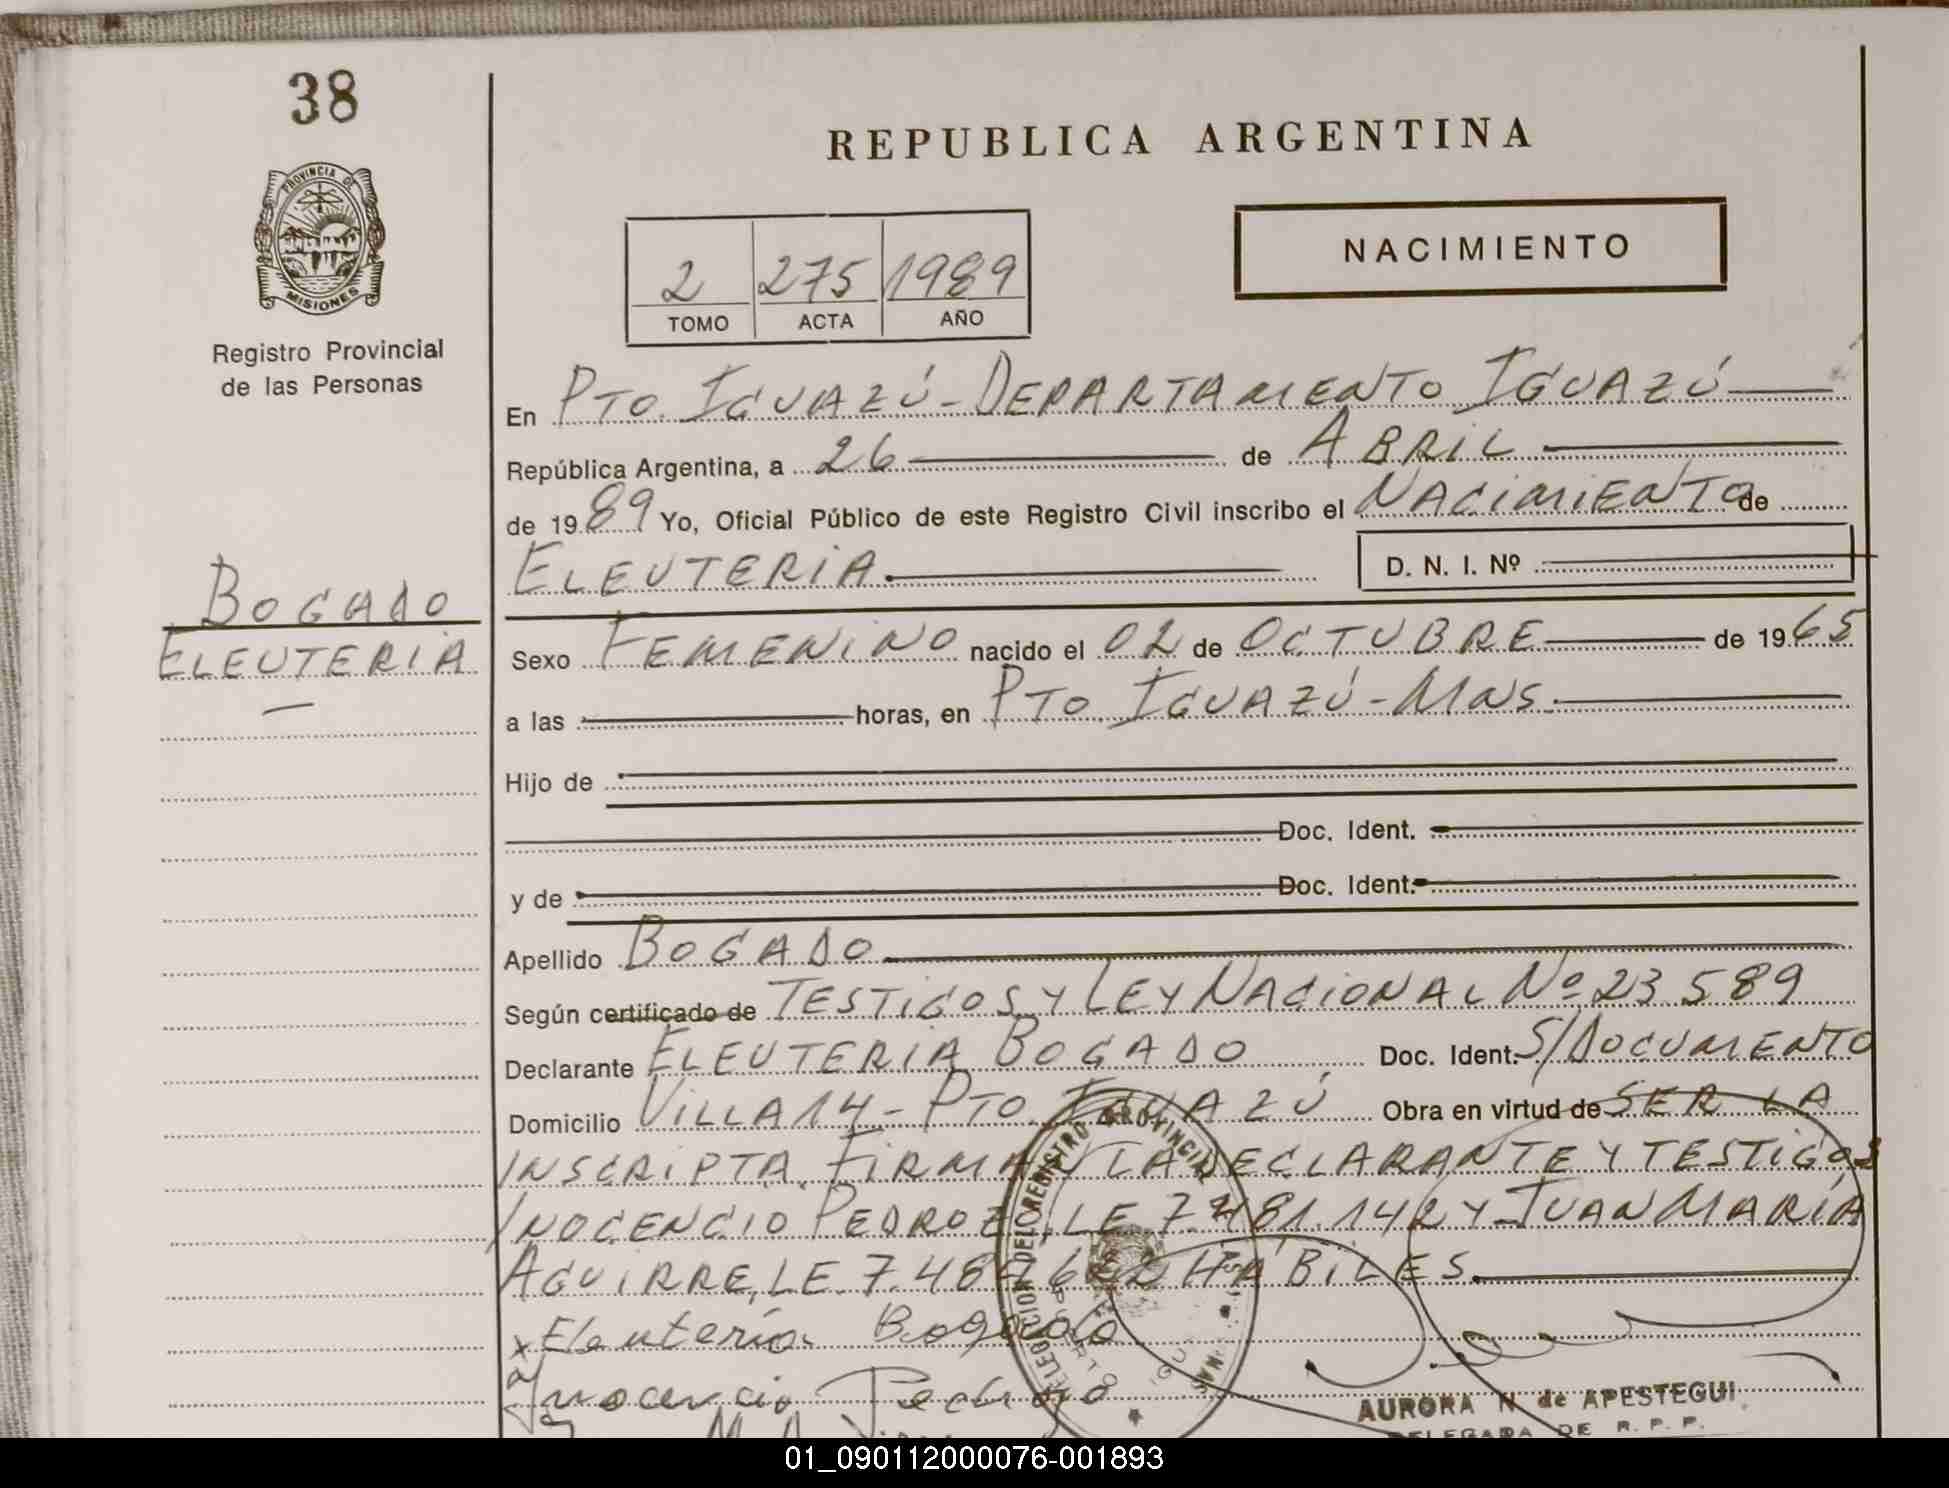 38
PROVINCIA DE
MISIONES
Registro Provincial
de las Personas
BOGADO
ELEUTERIA
REPUBLICA ARGENTINA
NACIMIENTO
2 275 1989
TOMO ACTA AÑO
En PTO. IGUAZÚ - DEPARTAMENTO IGUAZÚ
República Argentina, a 26 de ABRIL
de 1989 Yo, Oficial Público de este Registro Civil inscribo el NACIMIENTO de
ELEUTERIA D. N. I. Nº
Sexo FEMENINO nacido el 02 de OCTUBRE de 1965
a las horas, en PTO. IGUAZÚ - MNS.
Hijo de
Doc. Ident.
y de Doc. Ident.
Apellido BOGADO
Según certificado de TESTIGOS Y LEY NACIONAL Nº 23589
Declarante ELEUTERIA BOGADO Doc. Ident. S/DOCUMENTO
Domicilio VILLA 14 - PTO. IGUAZÚ Obra en virtud de SER LA
INSCRIPTA. FIRMAN LA DECLARANTE Y TESTIGOS
INOCENCIO PEDROZO, LE 7.481.142 Y JUAN MARÍA
AGUIRRE, LE. HÁBILES.
x Eleuteria Bogado
Inocencio Pedrozo
DELEGACION DEL REGISTRO PROVINCIAL
PUERTO IGUAZU
AURORA N de APESTEGUI
DELEGADA DE R. P. P.
01_090112000076-001893